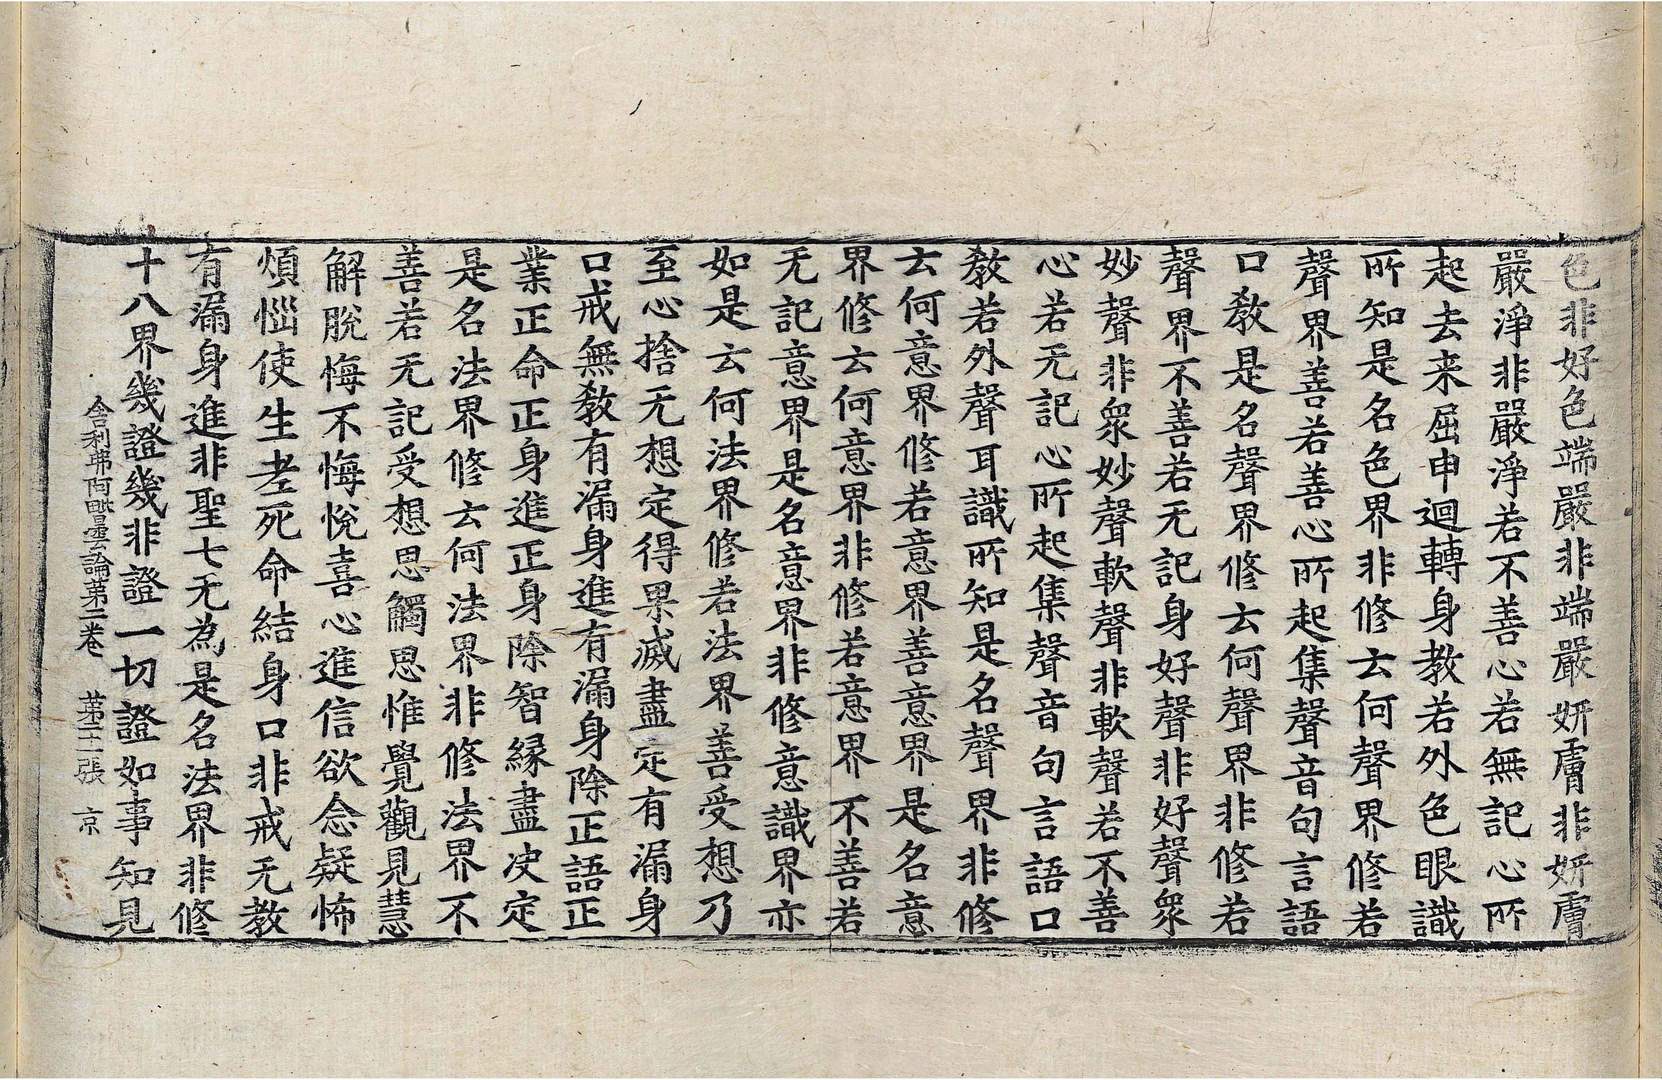 色非好色端嚴非端嚴妍膚非妍膚
嚴淨非嚴淨若不善心若無記心所
起去来屈申迴轉身教若外色眼識
所知是名色界非修云何聲界修若
聲界善若善心所起集聲音句言語
口教是名聲界修云何聲界非修若
聲界不善若无記身好聲非好聲衆
妙聲非衆妙聲軟聲非軟聲若不善
心若无記心所起集聲音句言語口
教若外聲耳識所知是名聲界非修
云何意界修若意界善意界是名意
界修云何意界非修若意界不善若
无記意界是名意界非修意識界亦
如是云何法界修若法界善受想乃
至心捨无想定得果滅盡定有漏身
口戒無教有漏身進有漏身除正語正
業正命正身進正身除智緣盡决定
是名法界修云何法界非修法界不
善若无記受想思觸思惟覺觀見慧
解脫悔不悔悅喜心進信欲念疑怖
煩惱使生老死命結身口非戒无教
有漏身進非聖七无為是名法界非修
十八界幾證幾非證一切證如事知見
舍利弗阿毗曇論第二卷 第十二張 京